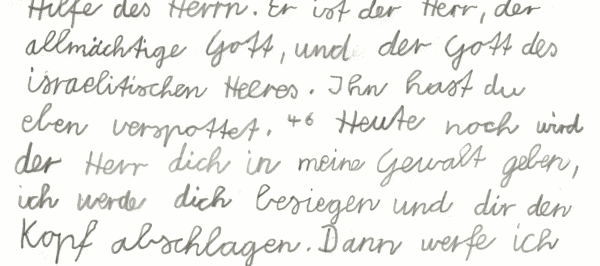 Hilfe des Herrn. Er ist der Herr, der
allmächtige Gott, und der Gott des
israelitischen Heeres. Ihn hast du
eben verspottet. 46 Heute noch wird
der Herr dich in meine Gewalt geben,
ich werde dich besiegen und dir den
Kopf abschlagen. Dann werfe ich